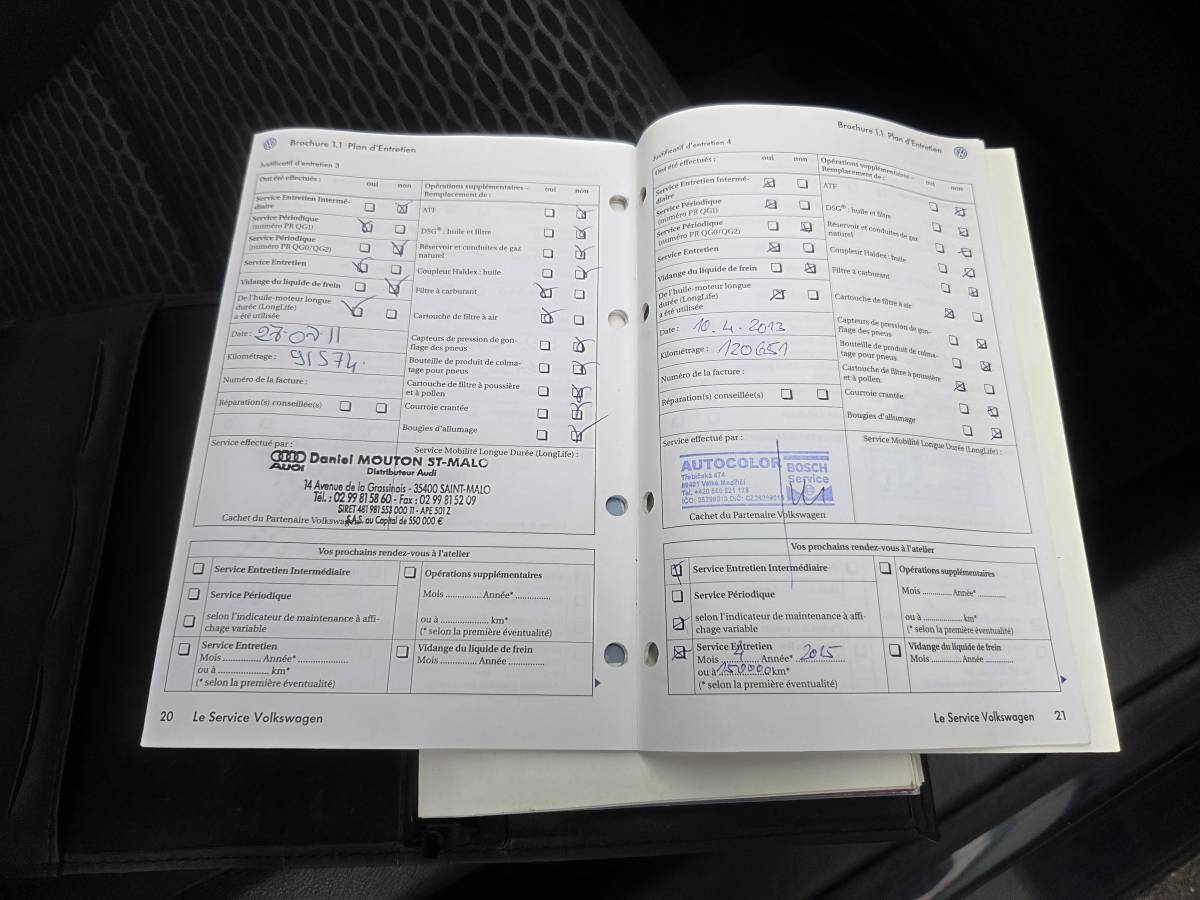 Brochure 1.1 Plan d'Entretien
Justificatif d'entretien 3
Ont été effectués : oui non
Service Entretien Intermé-
diaire
Service Périodique
(numéro PR QG1)
Service Périodique
(numéro PR QG0/QG2)
Service Entretien
Vidange du liquide de frein
De l'huile-moteur longue
durée (LongLife)
a été utilisée
Date : 27.07 11
Kilométrage : 91574.
Numéro de la facture :
Réparation(s) conseillée(s)
Opérations supplémentaires –
Remplacement de : oui non
ATF
DSG® : huile et filtre
Réservoir et conduites de gaz
naturel
Coupleur Haldex : huile
Filtre à carburant
Cartouche de filtre à air
Capteurs de pression de gon-
flage des pneus
Bouteille de produit de colma-
tage pour pneus
Cartouche de filtre à poussière
et à pollen
Courroie crantée
Bougies d'allumage
Service effectué par :
Service Mobilité Longue Durée (LongLife) :
Audi
Daniel MOUTON ST-MALO
Distributeur Audi
14 Avenue de la Grassinais - 35400 SAINT-MALO
Tél. : 02 99 81 58 60 - Fax : 02 99 81 52 09
SIRET 481 981 553 000 11 - APE 501 Z
S.A.S. au Capital de 550 000 €
Cachet du Partenaire Volkswagen
Vos prochains rendez-vous à l'atelier
Service Entretien Intermédiaire
Service Périodique
selon l'indicateur de maintenance à affi-
chage variable
Service Entretien
Mois .............. Année* ..................
ou à ...................... km*
(* selon la première éventualité)
Opérations supplémentaires
Mois .............. Année* ..............
ou à ...................... km*
(* selon la première éventualité)
Vidange du liquide de frein
Mois .............. Année ..............
20 Le Service Volkswagen
Brochure 1.1 Plan d'Entretien
Justificatif d'entretien 4
Ont été effectués : oui non
Service Entretien Intermé-
diaire
Service Périodique
(numéro PR QG1)
Service Périodique
(numéro PR QG0/QG2)
Service Entretien
Vidange du liquide de frein
De l'huile-moteur longue
durée (LongLife)
a été utilisée
Date : 10.4.2013
Kilométrage : 120651
Numéro de la facture :
Réparation(s) conseillée(s)
Opérations supplémentaires –
Remplacement de : oui non
ATF
DSG® : huile et filtre
Réservoir et conduites de gaz
naturel
Coupleur Haldex : huile
Filtre à carburant
Cartouche de filtre à air
Capteurs de pression de gon-
flage des pneus
Bouteille de produit de colma-
tage pour pneus
Cartouche de filtre à poussière
et à pollen
Courroie crantée
Bougies d'allumage
Service effectué par :
Service Mobilité Longue Durée (LongLife) :
AUTOCOLOR
Třebíčská 474
59401 Velké Meziříčí
BOSCH
Service
Cachet du Partenaire Volkswagen
Vos prochains rendez-vous à l'atelier
Service Entretien Intermédiaire
Service Périodique
selon l'indicateur de maintenance à affi-
chage variable
Service Entretien
Mois 4 Année* 2015
ou à 150000 km*
(* selon la première éventualité)
Opérations supplémentaires
Mois .............. Année* ..............
ou à ...................... km*
(* selon la première éventualité)
Vidange du liquide de frein
Mois .............. Année ..............
Le Service Volkswagen 21